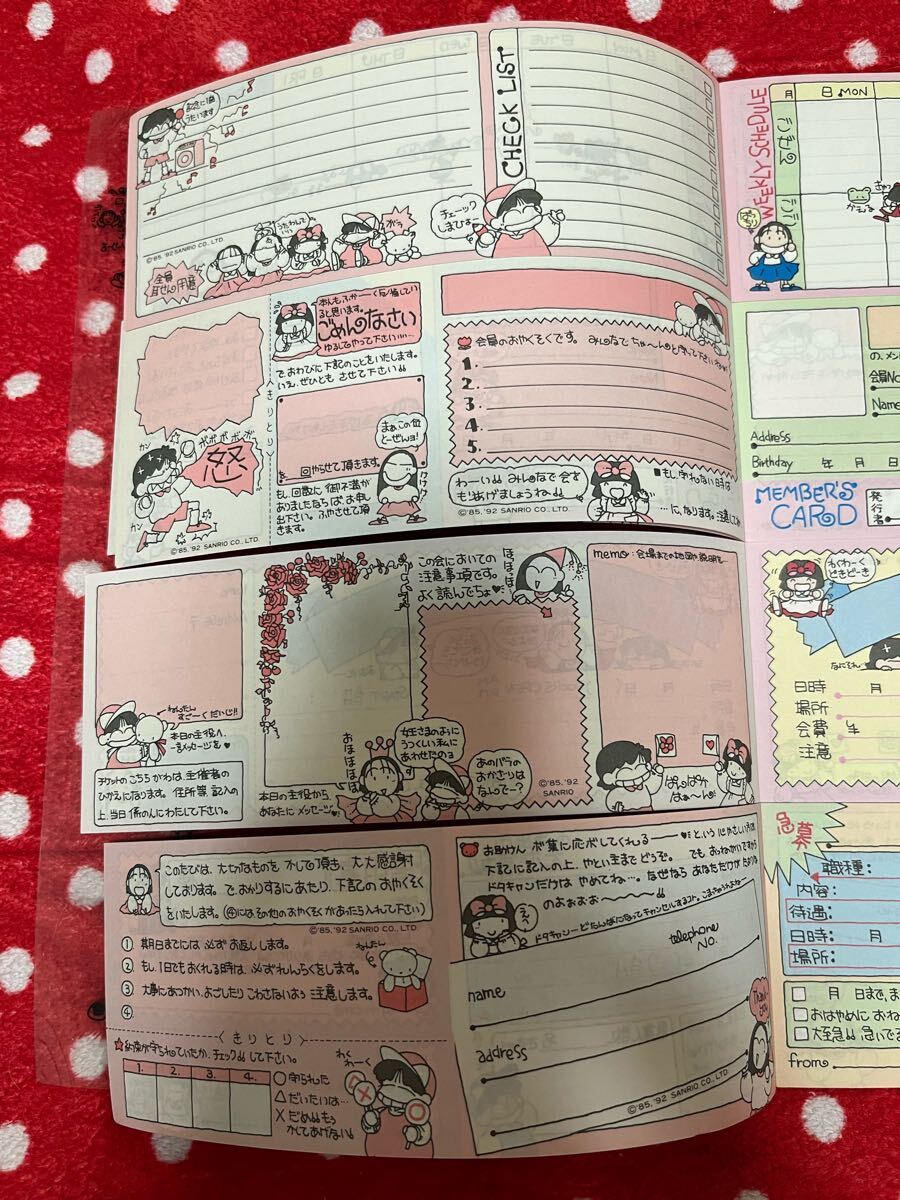 記念に1曲
うたいます
CHECK LIST
チェーック
しまひょー
うたわして
いい
ガラ
©'85,'92 SANRIO CO., LTD.
全員
耳せん用意
WEEKLY SCHEDULE
月
日 MON
本人もふかーく反省してい
ると思います。
ごめんのなさい
ゆるしてやって下さい……
で、おわびに下記のことをいたします。
いえ、ぜひとも させて下さい!!
きりとり
カン
ボボボボボ
怒
カン
まぁこの位
とーぜんヨ!
を 回やらせて頂きます。
もし、回数に御不満が
ありましたならば、お申し
出下さい。ふやさせて頂
きます。
ケケケ
©'85,'92 SANRIO CO., LTD.
会員のおやくそくです。
1.
2.
3.
4.
5.
わーい!! みんなで会を
もりあげましょうね!!
©'85,'92 SANRIO CO., LTD.
■もし、守れない時は
…に、なります。
会員No
Name
Address
Birthday 年 月 日
MEMBER'S
CARD
発行者
ねんたん
すごーくだいじ!!
本日の主役へ
一言メッセージを♥
チケットのこちらがわは、主催者の
ひかえになります。住所等記入の
上、当日係のんにわたして下さい。
この会においての
注意事項です。
よく読んでちょ♥
ほほほほ
memo:会場までの地図や説明を…
おほほほほ
女王さまのように
うつくしい私に
あわせたのョ
あのバラの
おかざりは
なんでー?
本日の主役から、
あなたにメッセージ♥
©'85,'92
SANRIO
ぱんぱか
ぱぁーん!!
わくわーく
どきどーき
なにそれ
日時 月
場所
会費 ¥
注意
このたびは、大切なものを かして頂き、大大感謝
しております。で、おかりするにあたり、下記のおやくそく
をいたします。(④にはその他のおやくそくがあったら入れて下さい)
©'85,'92 SANRIO CO., LTD.
① 期日までには 必ずお返しします。
② もし、1日でもおくれる時は、必ずれんらくをします。
③ 大事にあつかい、よごしたり こわさないよう 注意します。
④
ねんたん
〈きりとり〉
☆約束が守られていたか、チェック!! して下さい。
1. 2. 3. 4.
○ 守られた
△ だいたいは…
× だめ!! もう
かしてあげない!
わく
わーく
下記に記入の上、やといませどうぞ。
ドタキャンだけは やめてね…。
のょぉぉぉ〜
telephone
NO.
name
address
Thank you
©'85,'92 SANRIO CO., LTD.
急募
職種:
内容:
待遇:
日時: 月
場所:
□ 月 日まで、ま
□ おはやめに おね
□ 大至急!! 急いでる
from